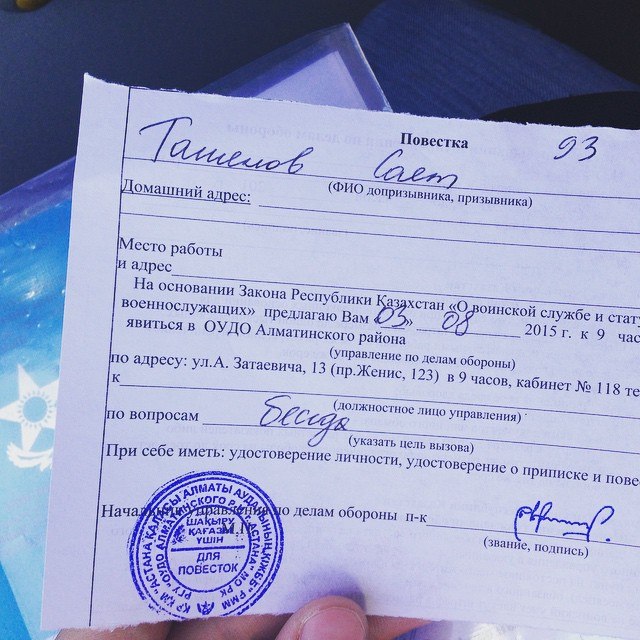 Повестка 93
Ташенов Саят
(ФИО допризывника, призывника)
Домашний адрес:
Место работы
и адрес
На основании Закона Республики Казахстан «О воинской службе и стату
военнослужащих» предлагаю Вам «03» 08 2015 г. к 9 час
явиться в ОУДО Алматинского района
(управление по делам обороны)
по адресу: ул.А. Затаевича, 13 (пр.Женис, 123) в 9 часов, кабинет № 118 те
к
(должностное лицо управления)
по вопросам беседа
(указать цель вызова)
При себе иметь: удостоверение личности, удостоверение о приписке и пове
Начальник управления по делам обороны п-к
(звание, подпись)
ШАҚЫРУ
ҚАҒАЗЫ
ҮШІН
ДЛЯ
ПОВЕСТОК